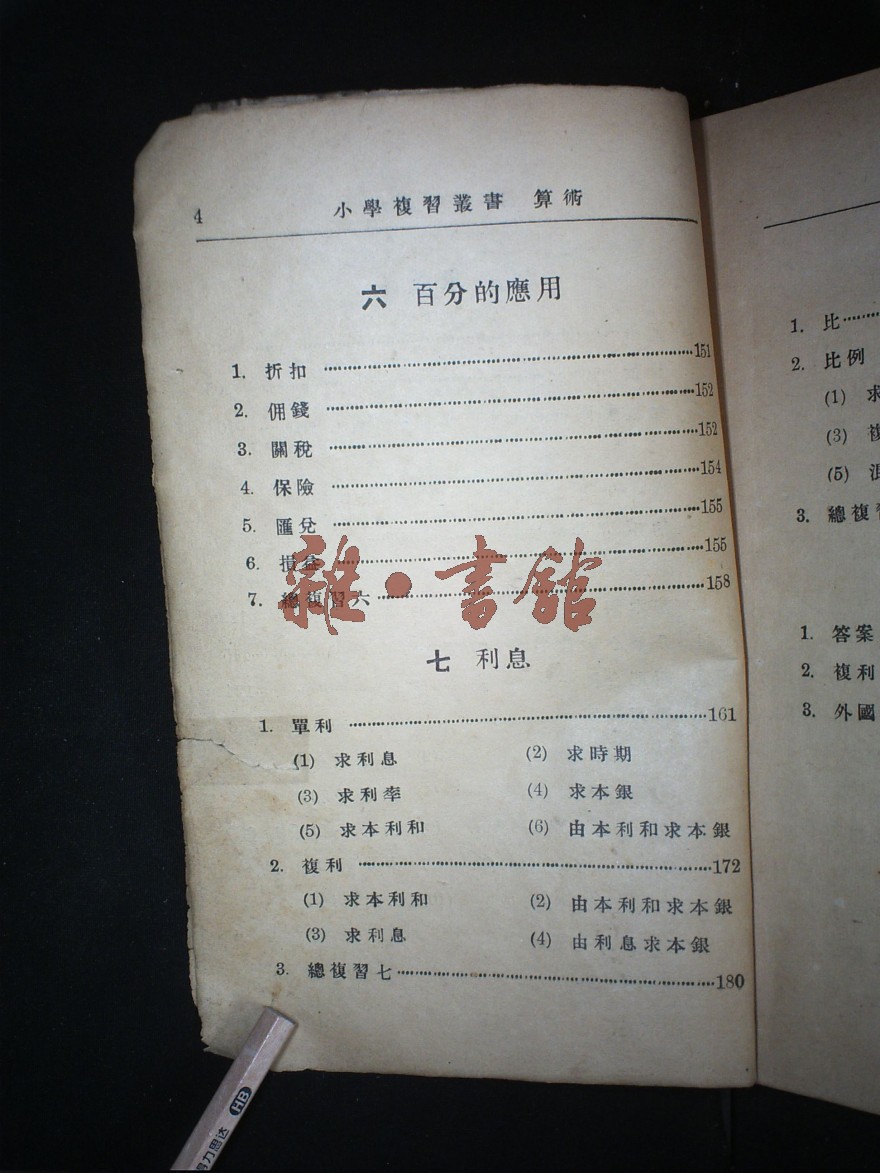 4 小學複習叢書 算術
六 百分的應用
1. 折扣 ……151
2. 佣錢 ……152
3. 關稅 ……152
4. 保險 ……154
5. 匯兌 ……155
6. 損益 ……155
7. 總複習六 ……158
雜·書館
七 利息
1. 單利 ……161
(1) 求利息 (2) 求時期
(3) 求利率 (4) 求本銀
(5) 求本利和 (6) 由本利和求本銀
2. 複利 ……172
(1) 求本利和 (2) 由本利和求本銀
(3) 求利息 (4) 由利息求本銀
3. 總複習七 ……180
1. 比……
2. 比例
(1) 求
(3) 複
(5) 混
3. 總複習
1. 答案
2. 複利
3. 外國
得力思达 HB